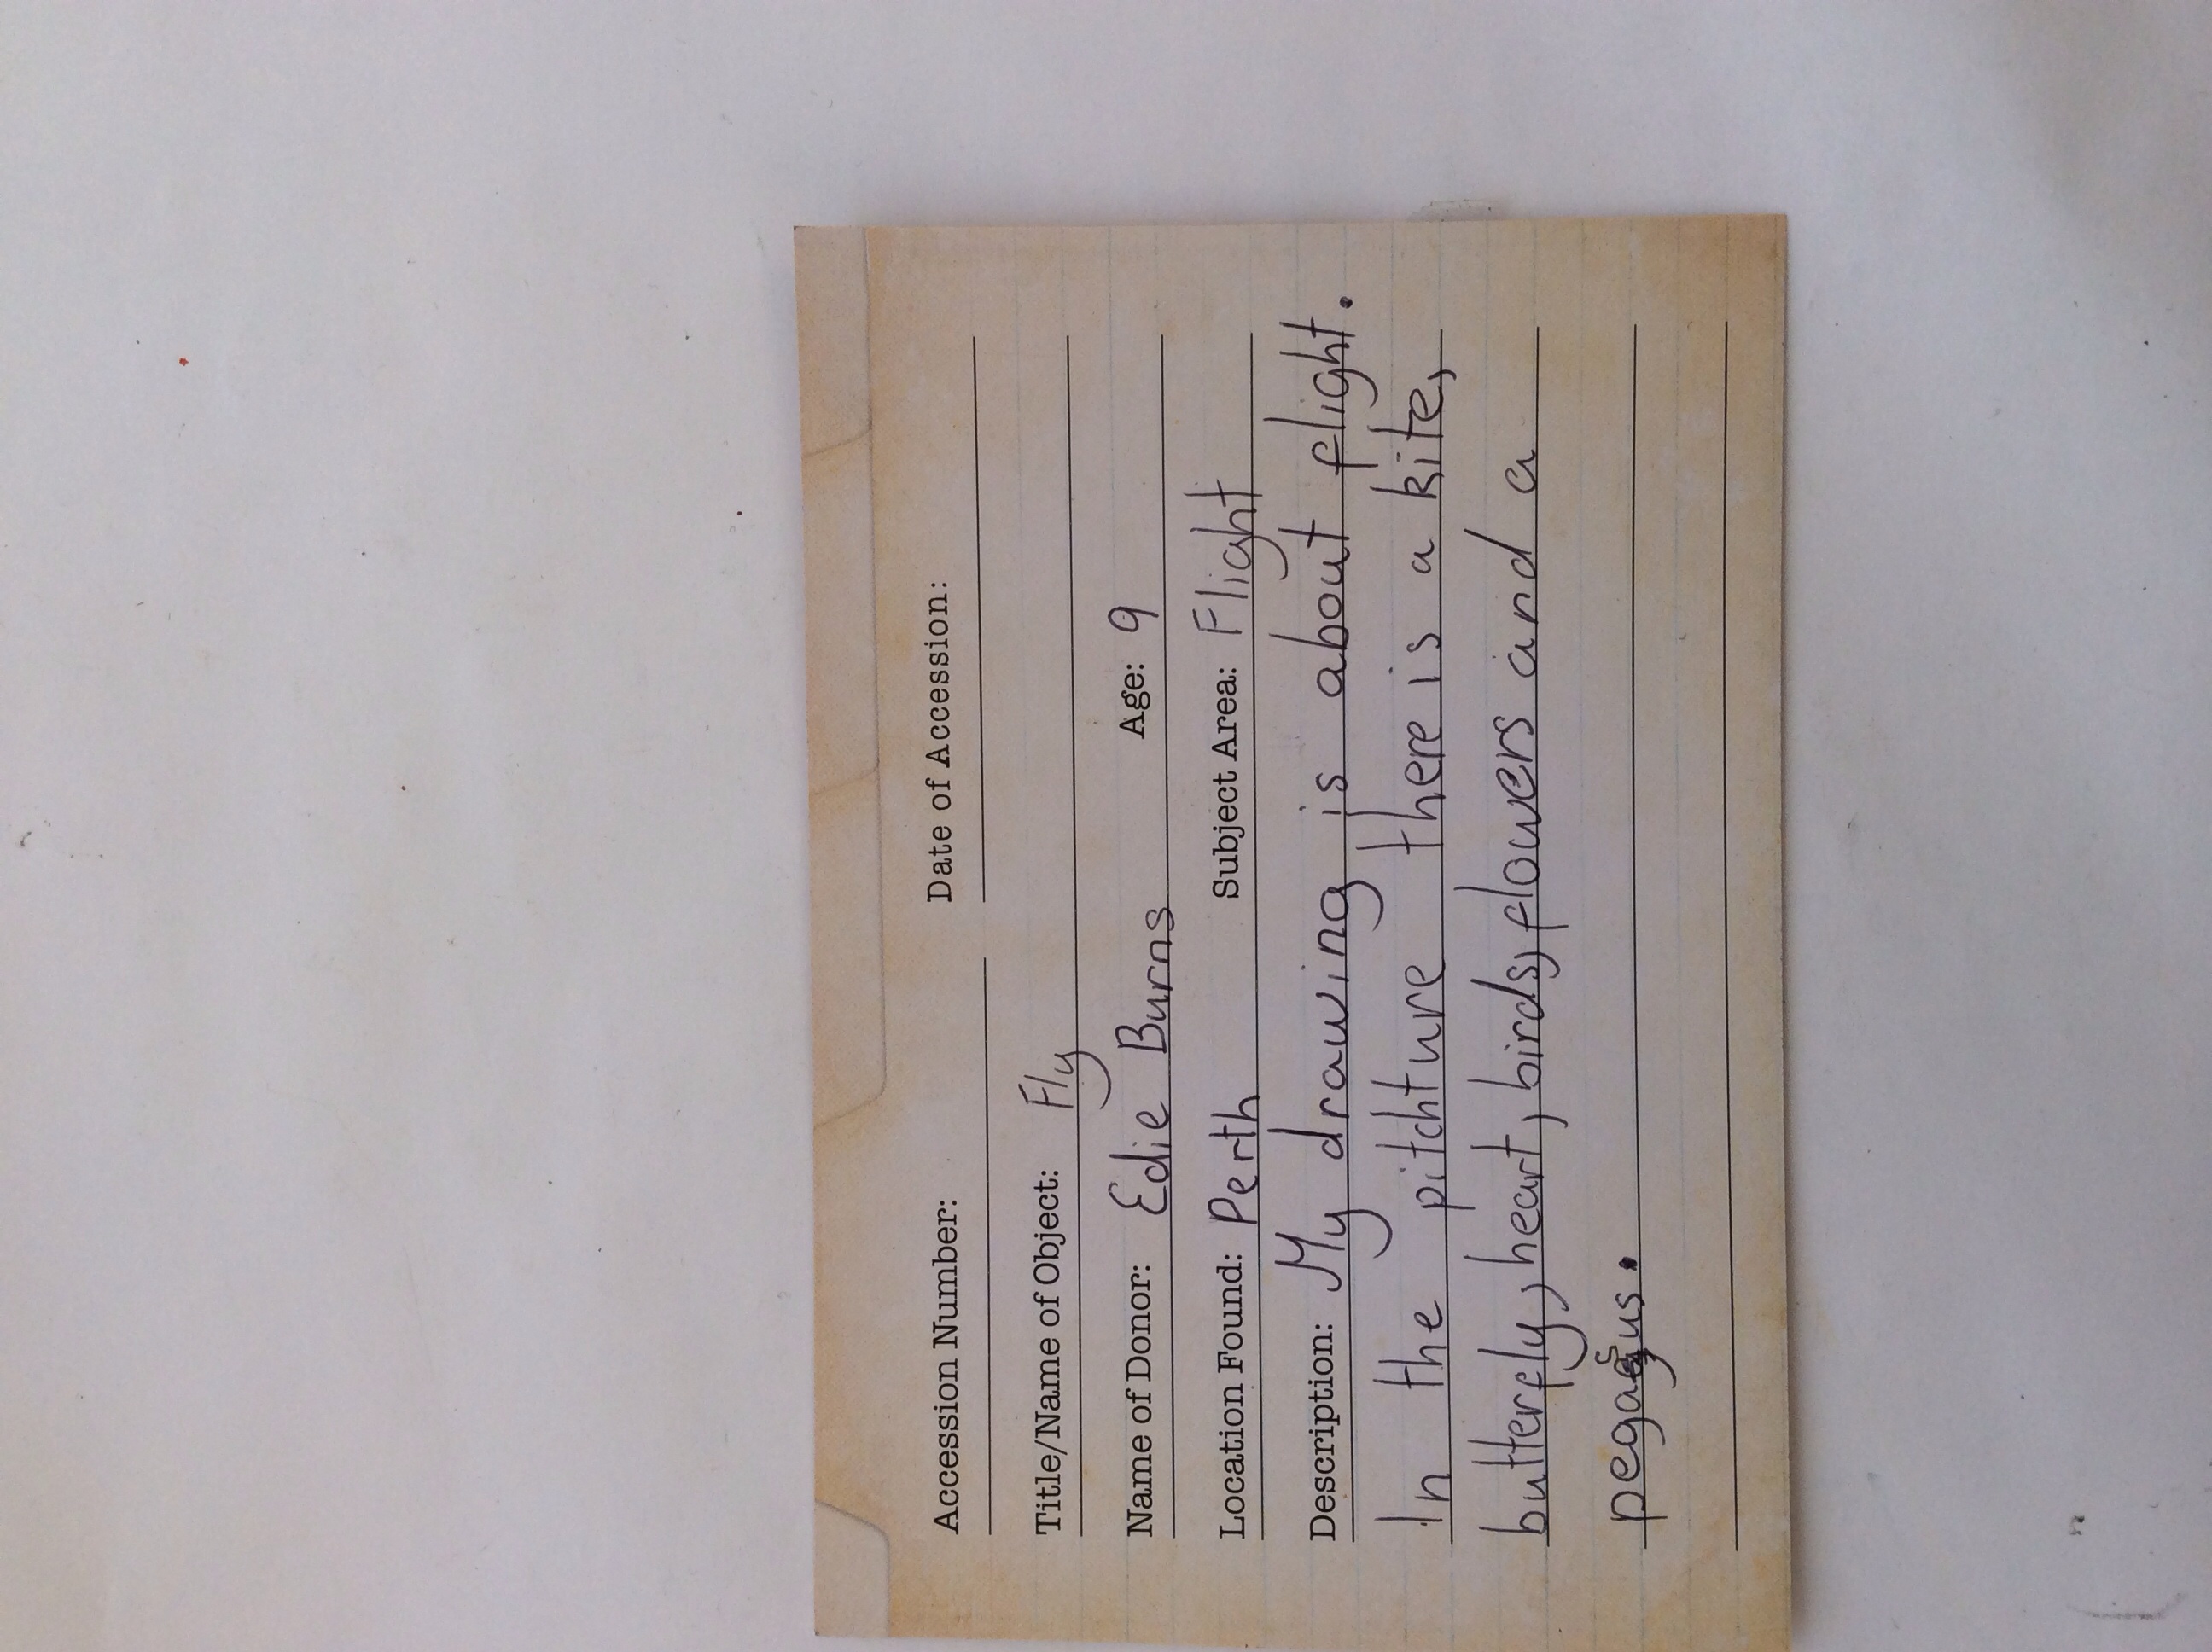 Accession Number: Date of Accession:
Title/Name of Object: Fly
Name of Donor: Edie Burns Age: 9
Location Found: Perth Subject Area: Flight
Description: My drawing is about flight.
In the pitchture there is a kite,
butterfly, heart, birds, flowers and a
pegasus.